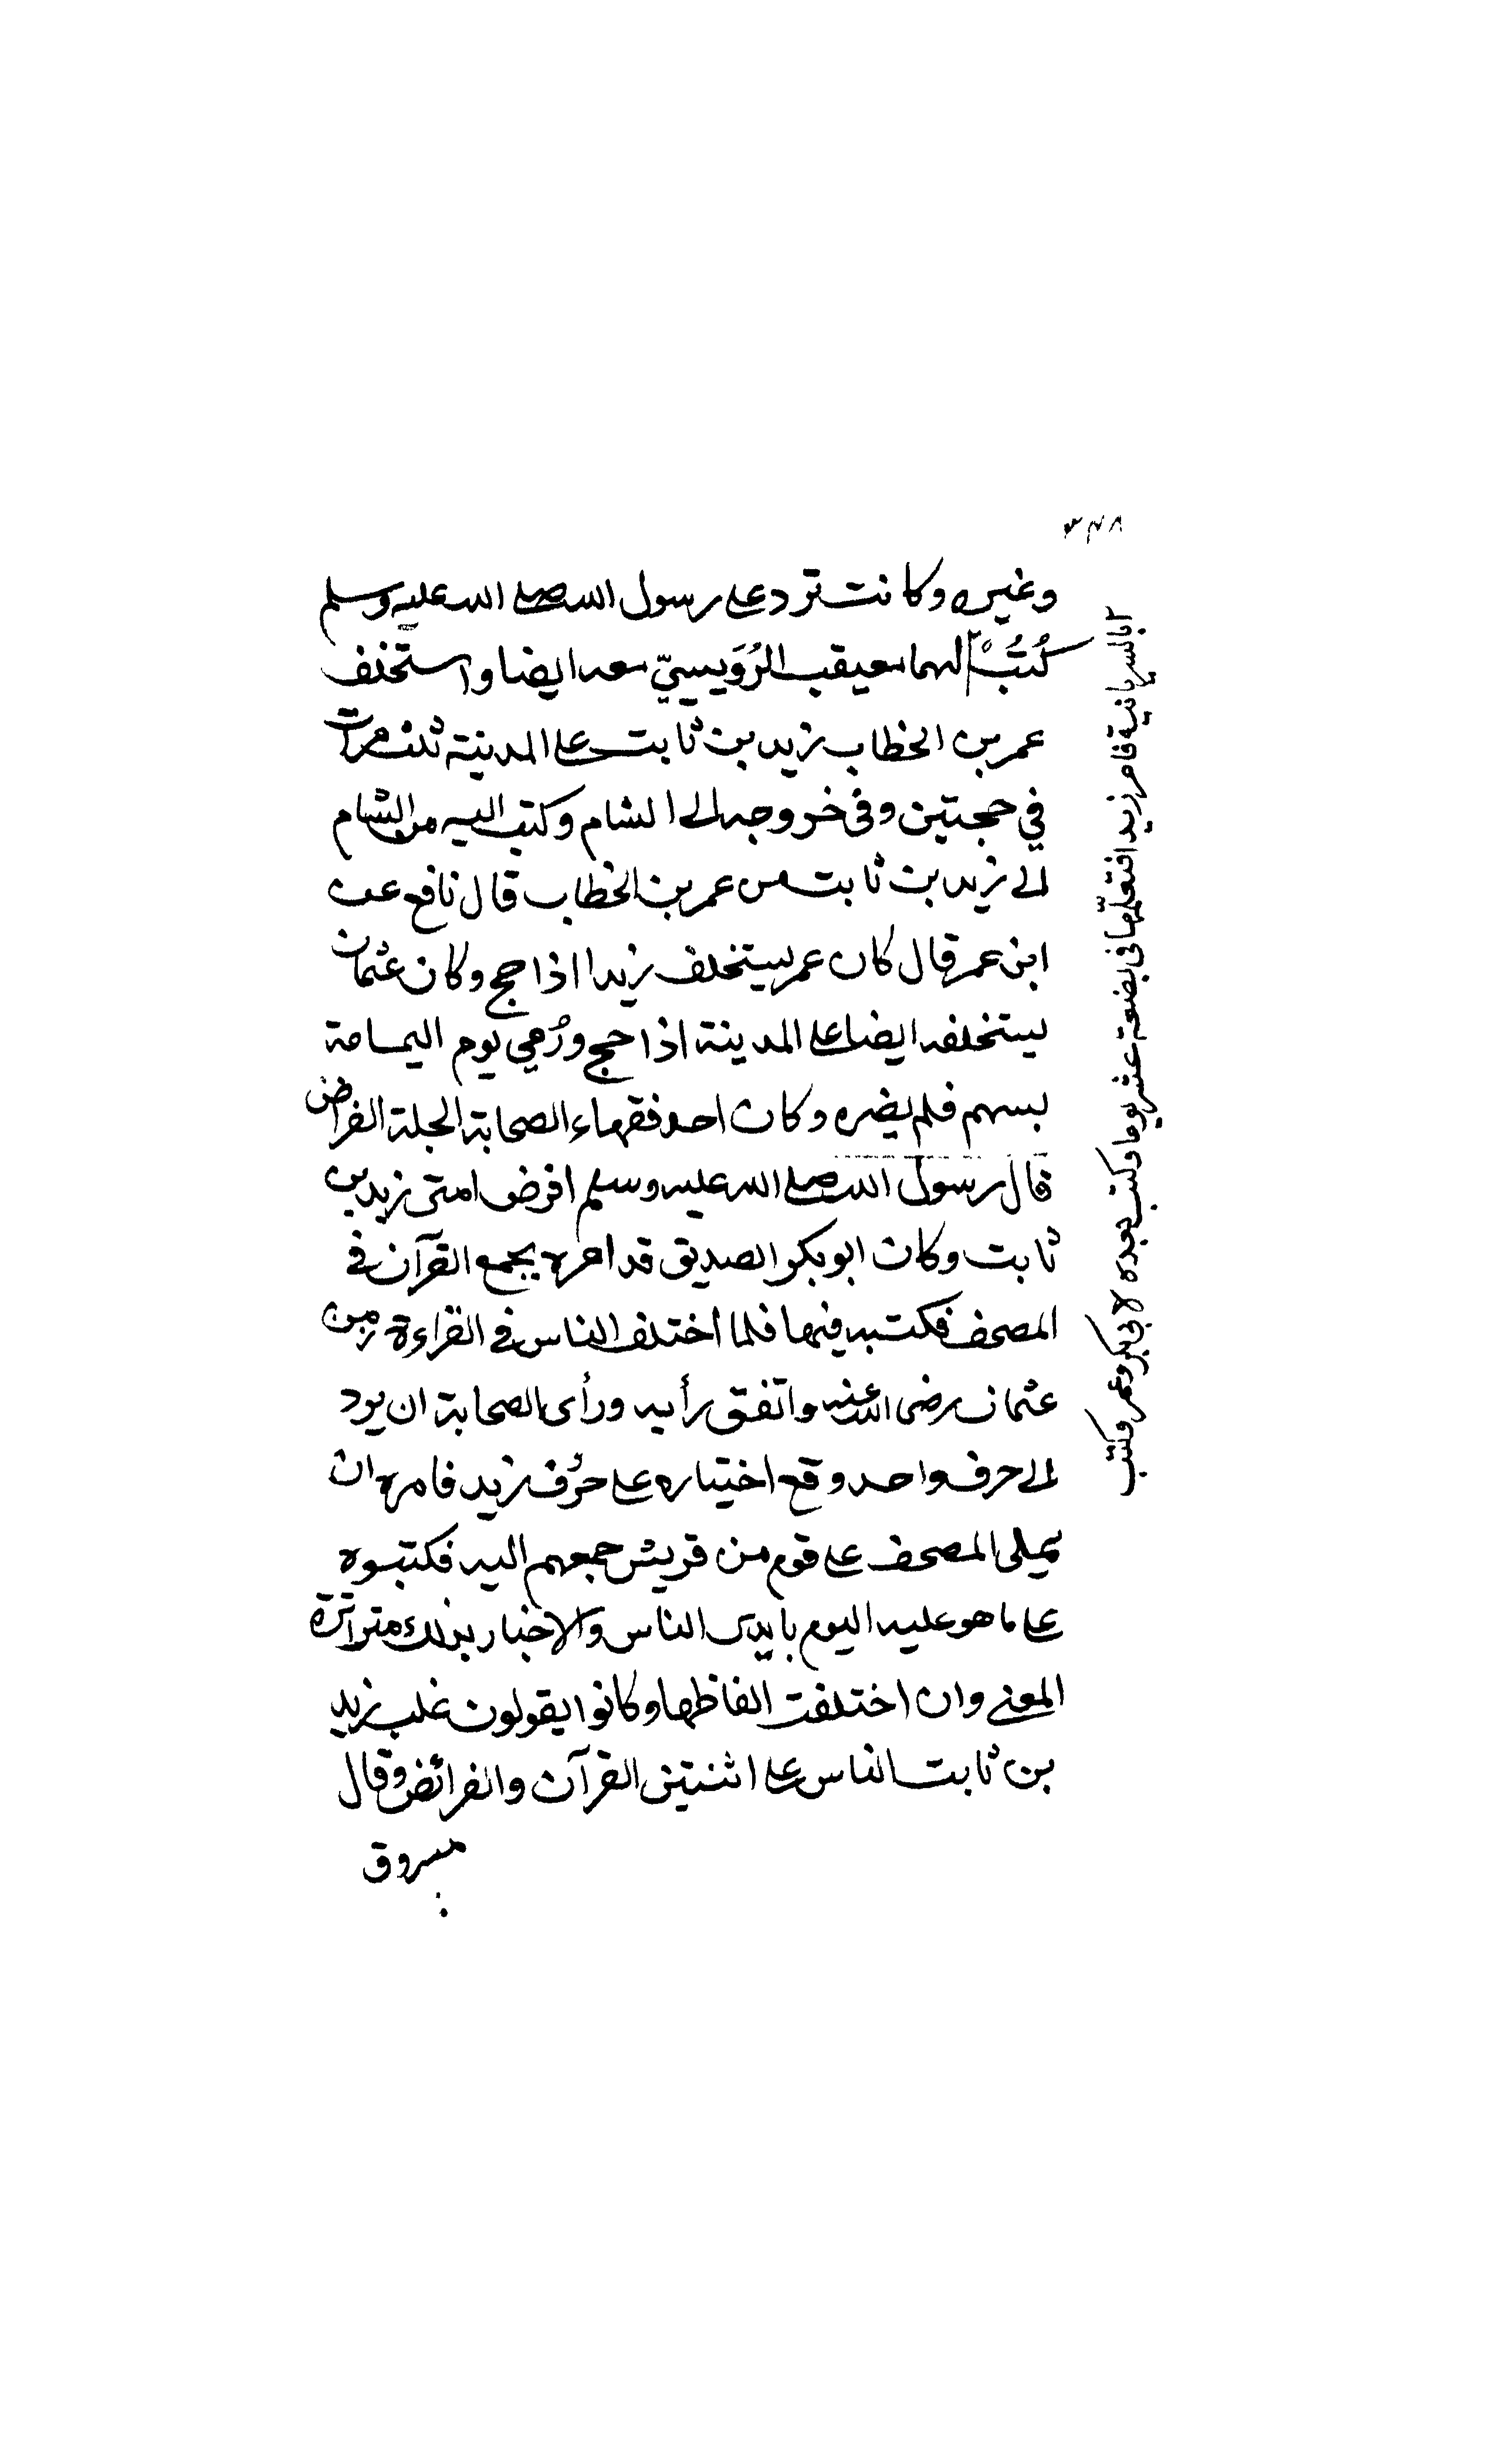 ٣٤٨
وغيره وكانت ترد على رسول الله صلى الله عليه وسلم
كُتُبْ لهما معيقب الرُوَيسيّ معه ايضا واستخلف
عمر بن الخطاب زيد بن ثابت على المدينة ثلث مرات
في حجتين وفى خروجه الى الشام وكتب اليه من الشام
الى زيد بن ثابت من عمر بن الخطاب قال نافع عن
ابن عمر قال كان عمر يستخلف زيدا اذا حج وكان عثمان
يستخلفه ايضا على المدينة اذا حج ورُمي يوم اليمامة
بسهم فلم يضره وكان احد فقهاء الصحابة الجلة الفراض
قال رسول الله صلى الله عليه وسلم افرض امتى زيد بن
ثابت وكان ابو بكر الصديق قد امره بجمع القرآن فى
المصحف فكتبه فيها فلما اختلف الناس فى القراءة زمن
عثمان رضى الله عنه واتفق رأيه ورأى الصحابة ان يرد
الى حرف واحد وقع اختياره على حرف زيد فامره ان
يملى المصحف على قوم من قريش جمعهم اليه فكتبوه
على ما هو عليه اليوم بايدى الناس والاخبار بذلك متواترة
المعنى وان اختلفت الفاظها وكانوا يقولون غلب زيد
بن ثابت الناس على اثنتين القرآن والفرائض وقال
مسروق
بالسريانية فامر زيدا فتعلّمها فى بضعة عشر يوما وكتب بعده لابى بكر وعمر وكتب